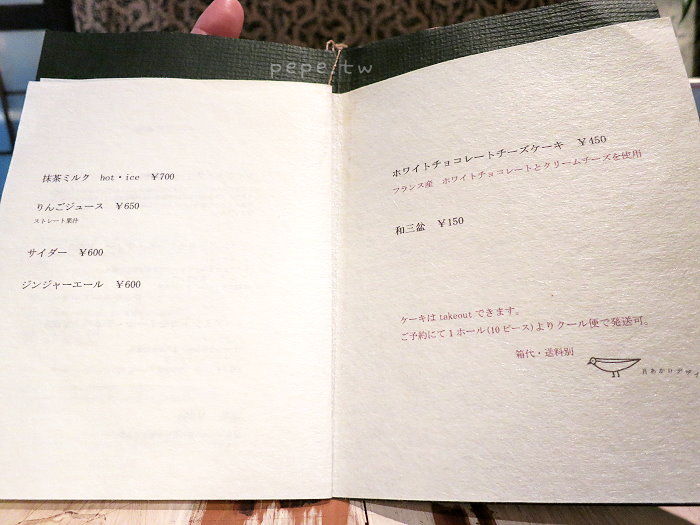 pepe.tw
抹茶ミルク hot・ice ￥700
りんごジュース ￥650
ストレート果汁
サイダー ￥600
ジンジャーエール ￥600
ホワイトチョコレートチーズケーキ ￥450
フランス産 ホワイトチョコレートとクリームチーズを使用
和三盆 ￥150
ケーキは takeout できます。
ご予約にて1ホール(10ピース)よりクール便で発送可。
箱代・送料別
月あかりデザイ